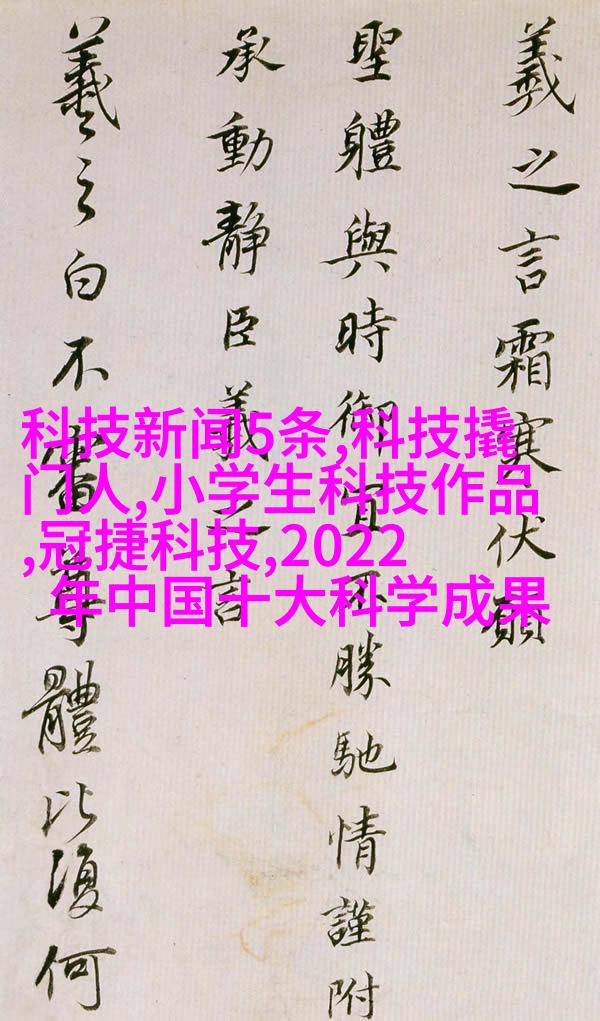 羲之言霜寒伏願
聖體與時御宜不勝馳情謹附
承動靜臣羲之言
羲之白不審尊體比復何
科技新闻5条,科技撬
门人,小学生科技作品
,冠捷科技,2022
年中国十大科学成果